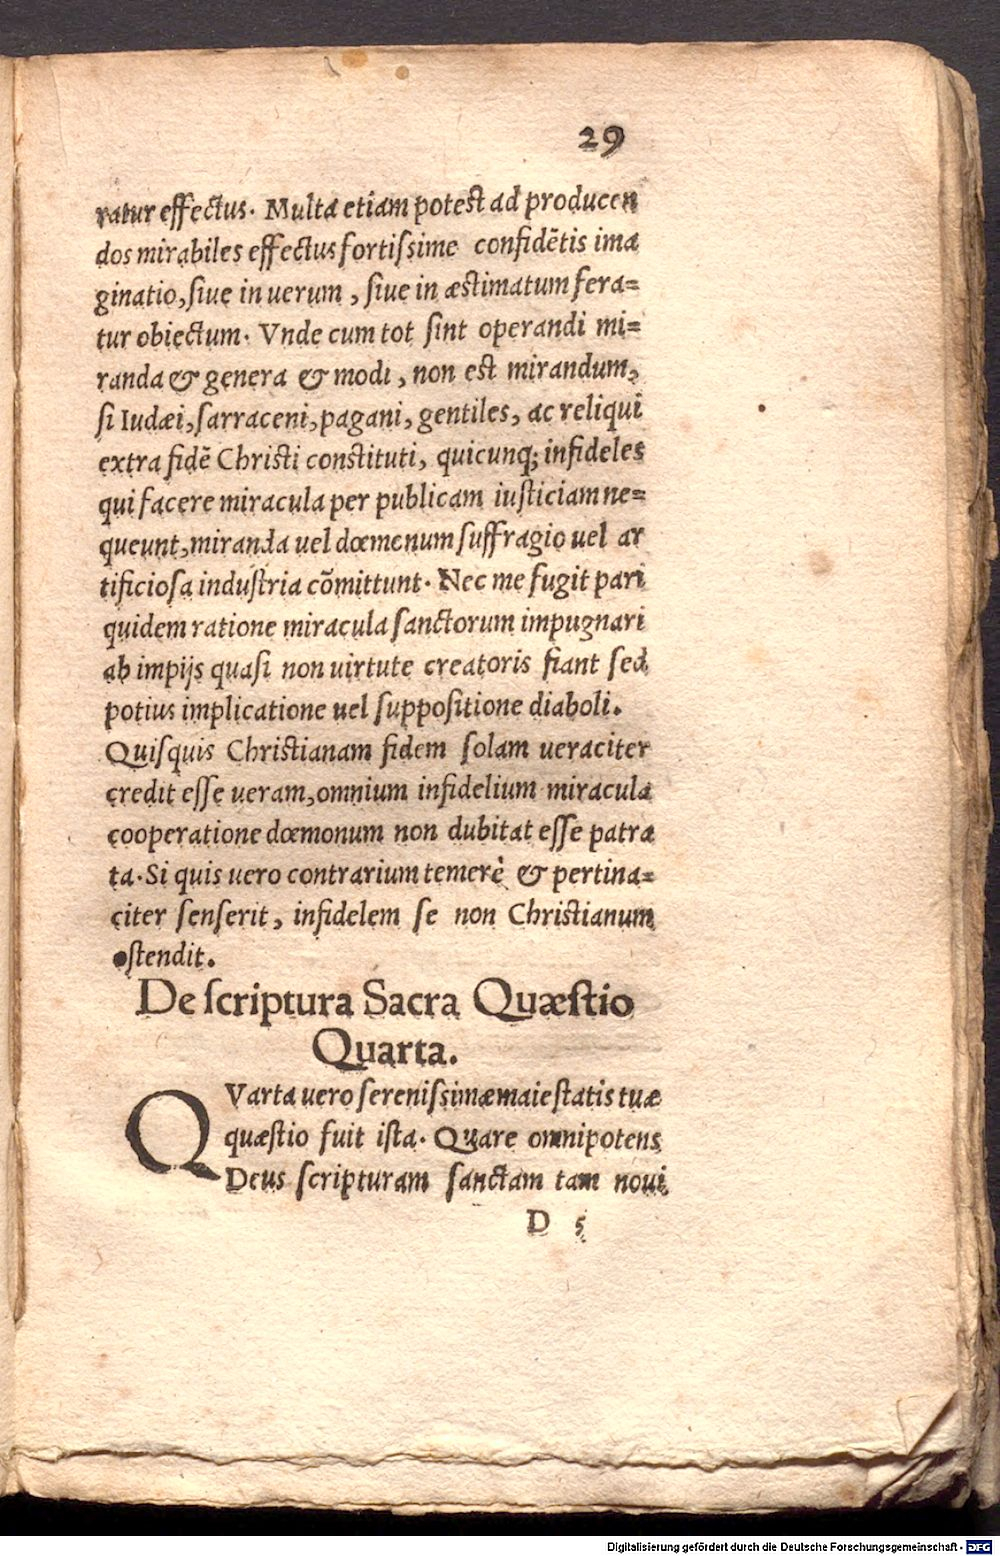 29
ratur effectus. Multa etiam potest ad producen
dos mirabiles effectus fortiſsime confidētis ima
ginatio, ſiue in uerum, ſiue in æstimatum fera=
tur obiectum. Vnde cum tot ſint operandi mi=
randa & genera & modi, non est mirandum,
ſi Iudæi, ſarraceni, pagani, gentiles, ac reliqui
extra fidē Christi constituti, quicunq; infideles
qui facere miracula per publicam iuſticiam ne=
queunt, miranda uel dœmonum ſuffragio uel ar
tificioſa induſtria cōmittunt. Nec me fugit pari
quidem ratione miracula ſanctorum impugnari
ab impijs quaſi non uirtute creatoris fiant ſed
potius implicatione uel ſuppoſitione diaboli.
Quiſquis Christianam fidem ſolam ueraciter
credit eſſe ueram, omnium infidelium miracula
cooperatione dœmonum non dubitat eſſe patra
ta. Si quis uero contrarium temerè & pertina=
citer ſenſerit, infidelem ſe non Christianum
oſtendit.
De ſcriptura Sacra Quæſtio
Quarta.
QVarta uero ſereniſsimæ maieſtatis tuæ
quæſtio fuit iſta. Quare omnipotens
Deus ſcripturam ſanctam tam noui
D 5
Digitalisierung gefördert durch die Deutsche Forschungsgemeinschaft - DFG